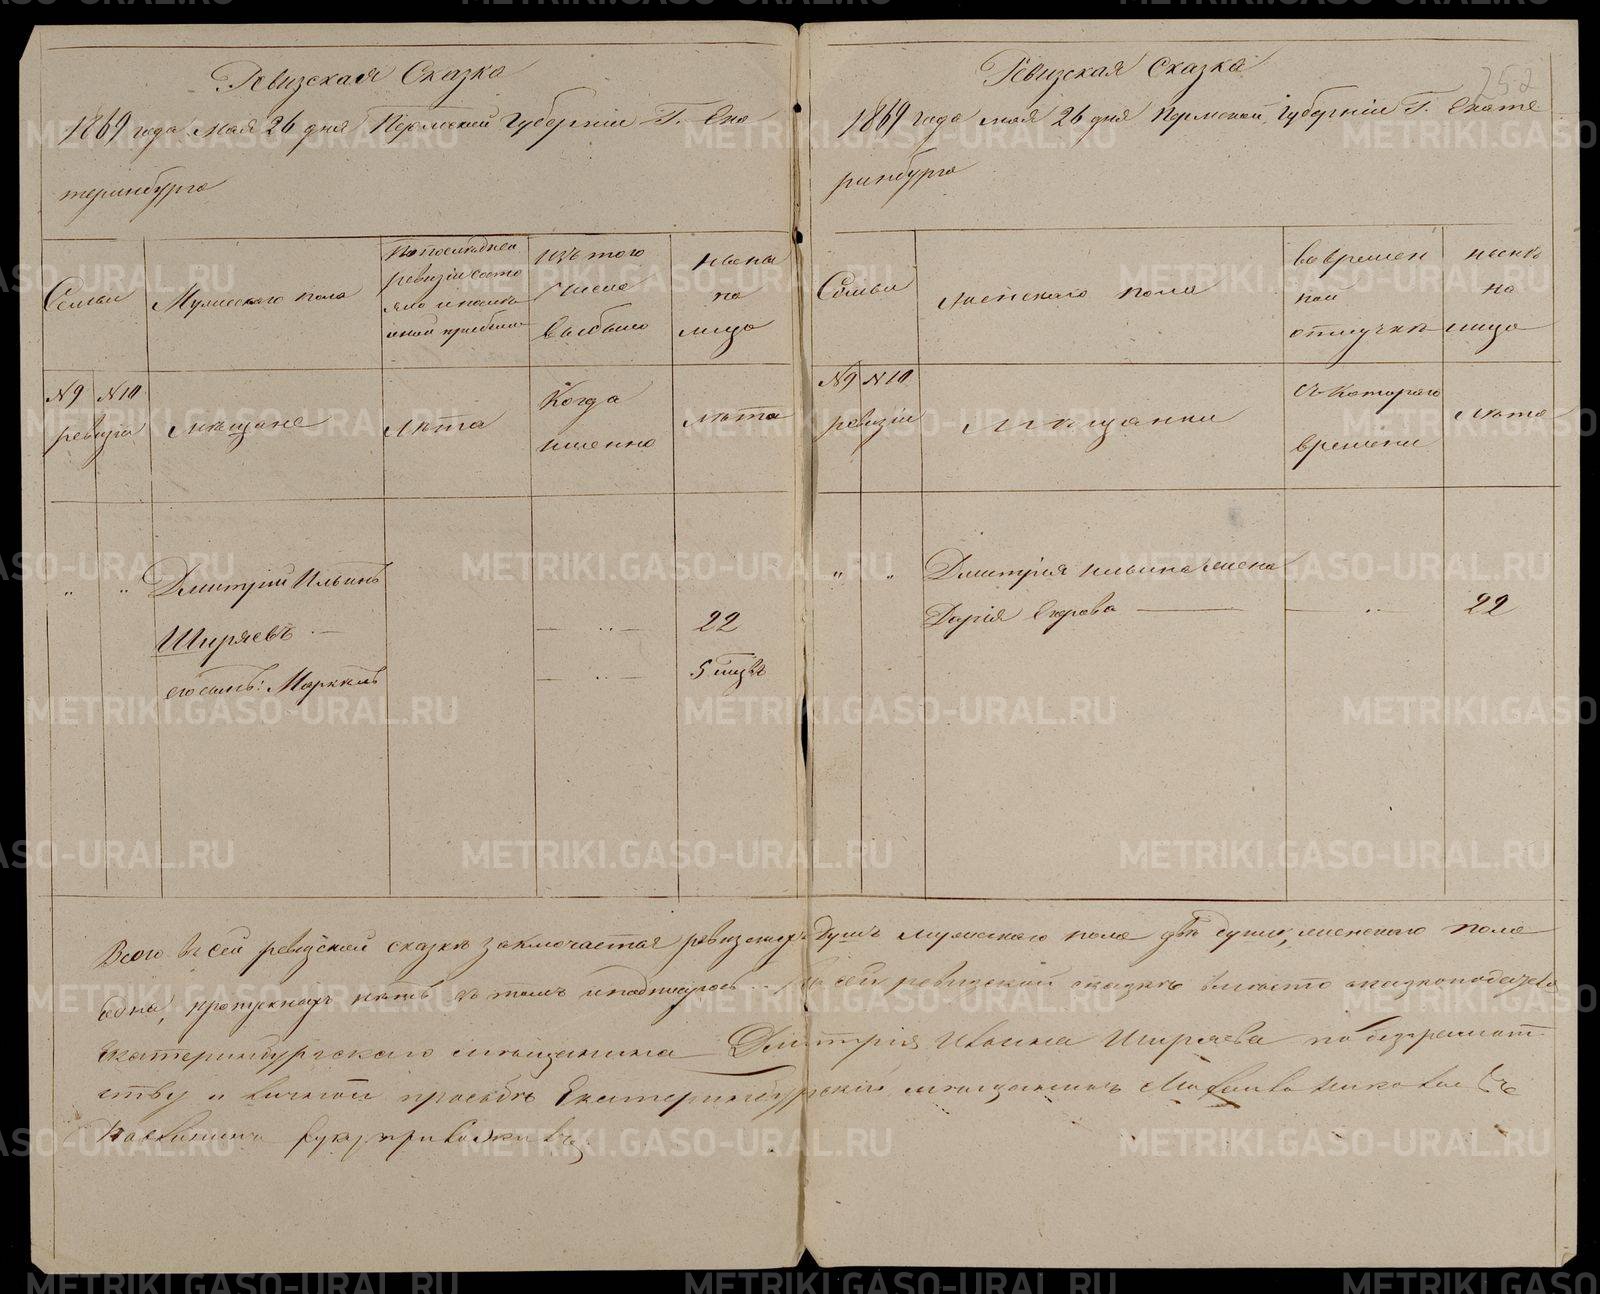 Ревизская Сказка
1869 года мая 26 дня Пермской Губерніи Г. Ека
теринбурга
Семьи
Мужескаго пола
По последней
ревизіи состо
яло и после
оной прибыло
Изъ того
числа
выбыло
ныне
на
лицо
№9 №10
ревизіи
Мещане
Лета
Когда
именно
Лета
" " Дмитрій Ильинъ
Ширяевъ — " — 22
его сынъ: Маркелъ — " — 5 мцвъ
Ревизская Сказка
252
1869 года мая 26 дня Пермской Губерніи Г. Екате
ринбурга
Семьи
Женскаго пола
Во времен
ной
отлучке
ныне
на
лицо
№9 №10
ревизіи
Мещанки
Съ котораго
времени
Лета
" " Дмитрія Ильина жена
Дарія — " 22
Всего въ сей ревизской сказке заключается ревизскихъ душъ мужескаго пола две души, женскаго пола
одна, пропускныхъ нетъ въ томъ и подписуюсь. Къ сей ревизской сказке вместо сказкоподателя
Екатеринбургскаго мещанина Дмитрія Ильина Ширяева по безграмот
ству и личной просьбе Екатеринбургскій мещанинъ
руку приложилъ
METRIKI.GASO-URAL.RU